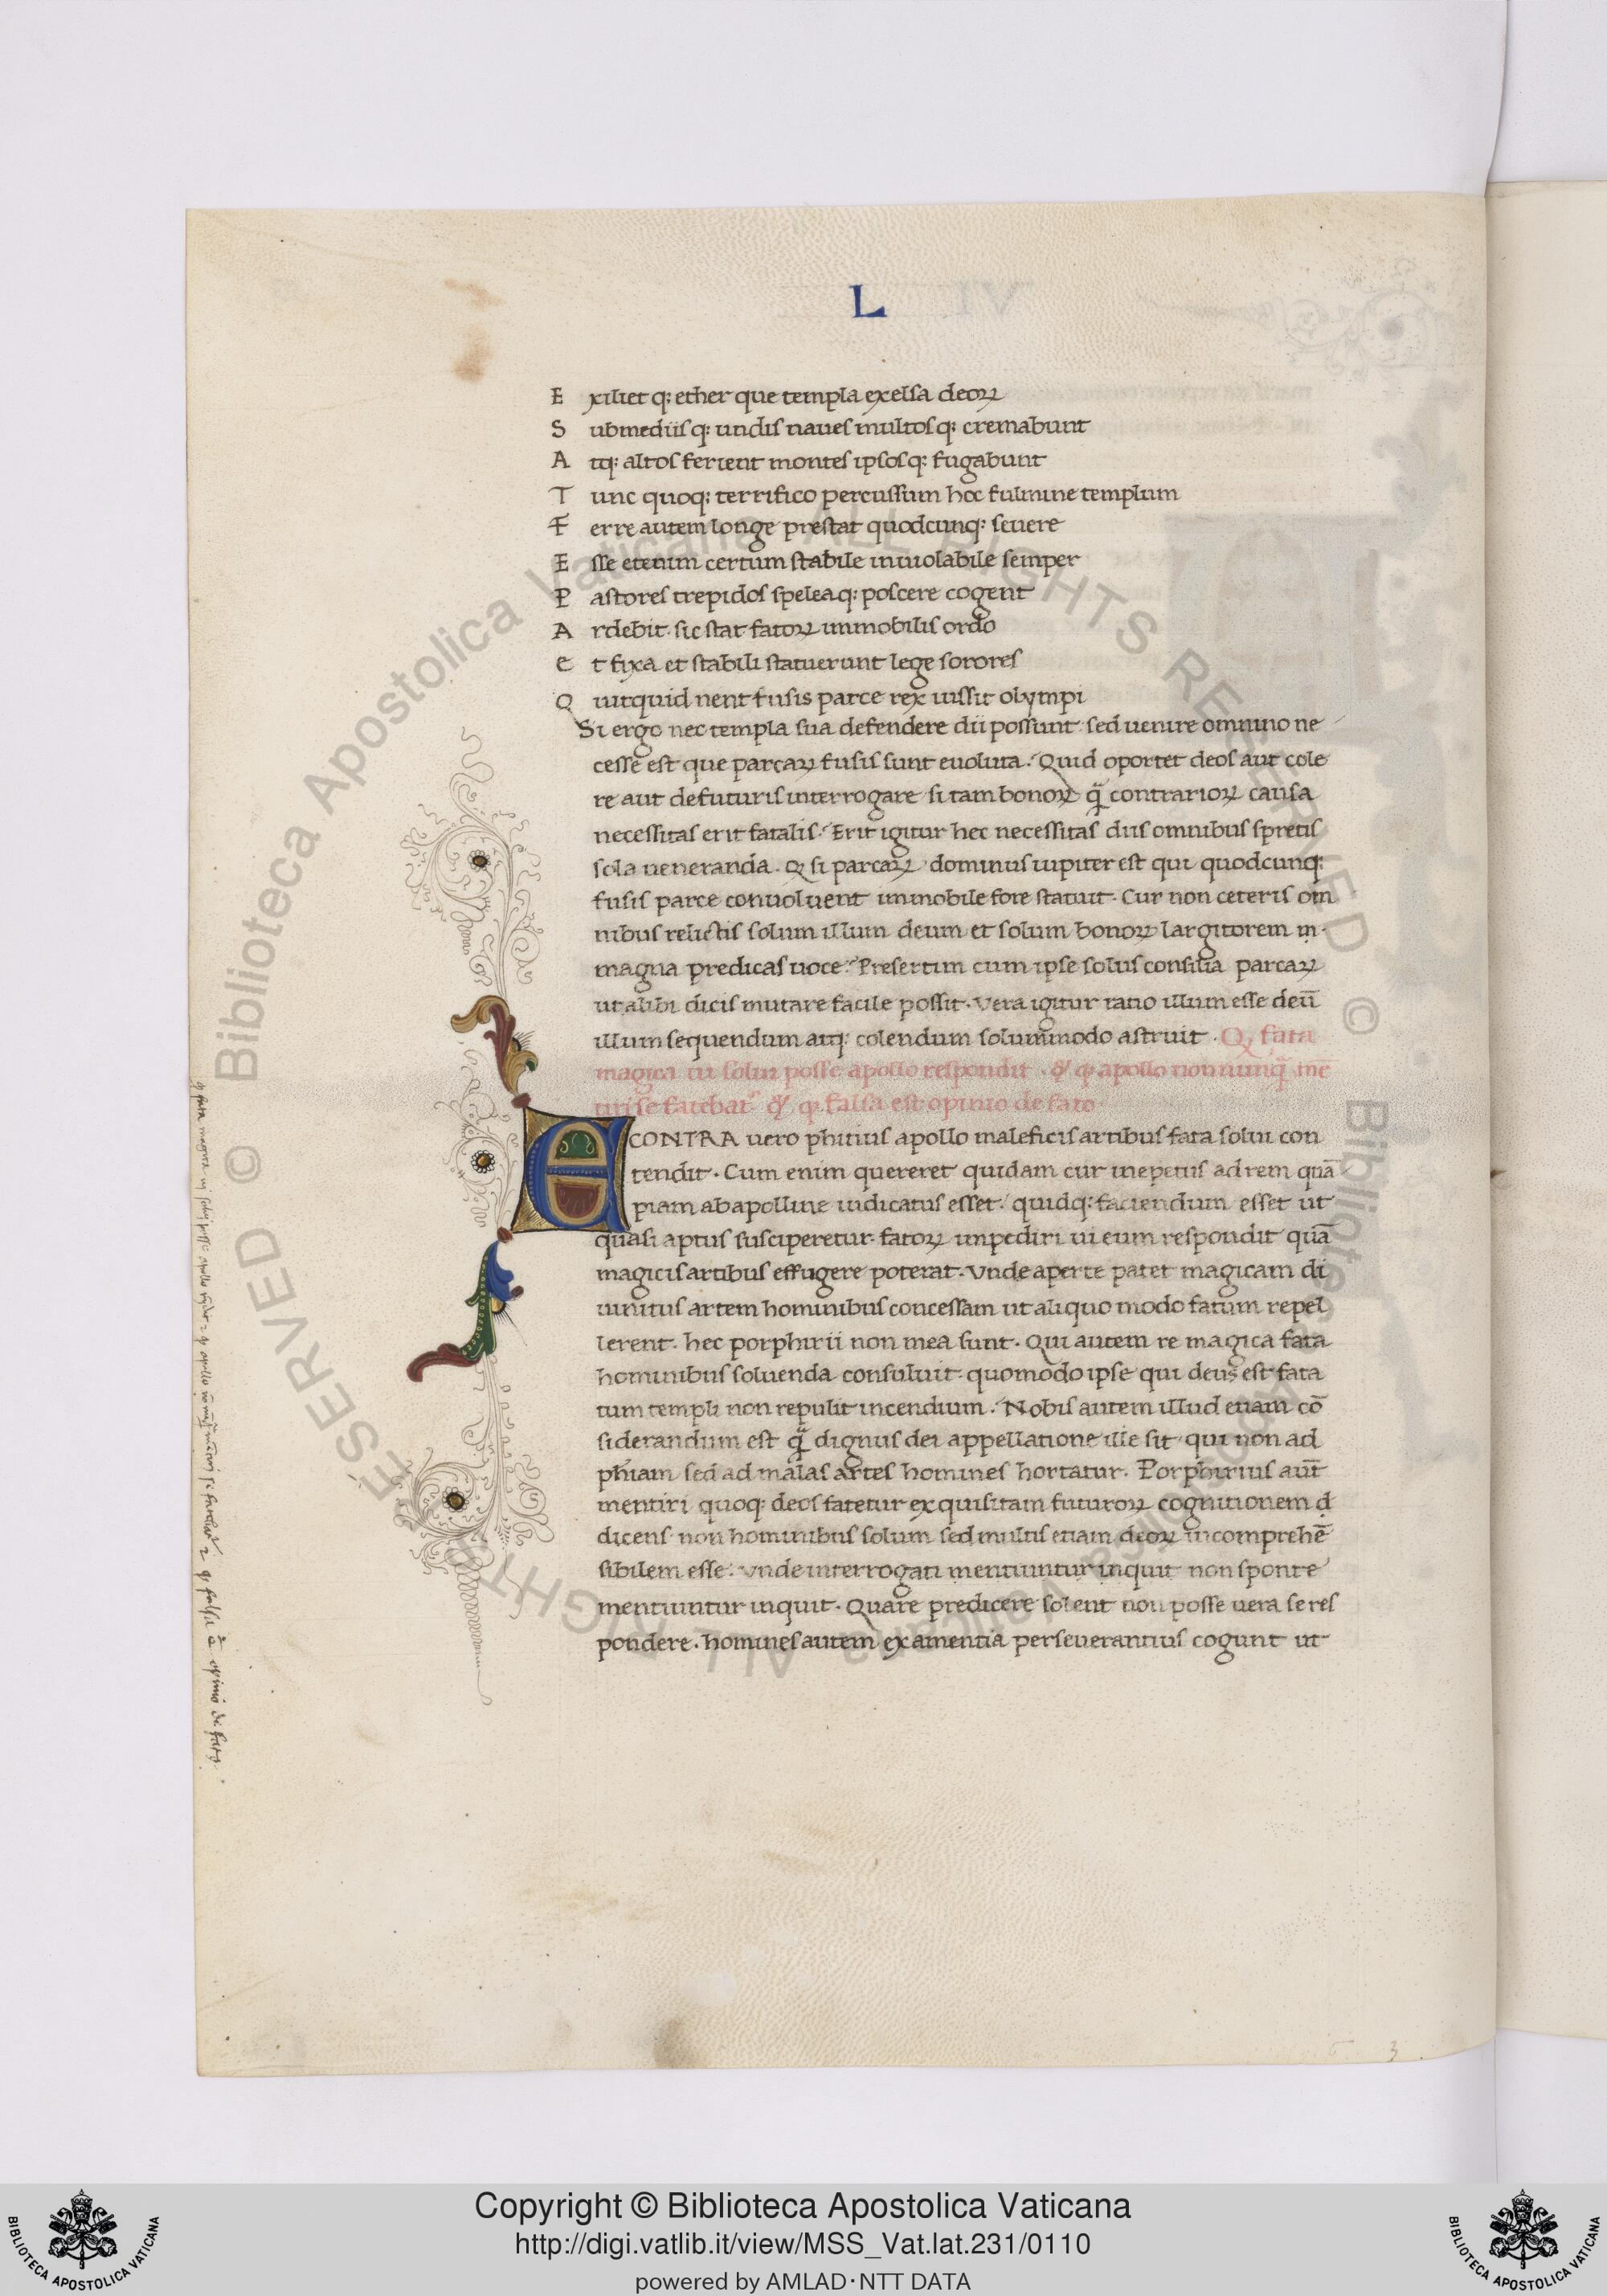 L
E xiliet q: ether que templa exelsa deoꝝ
S ubmediis q: undis naues multos q: cremabunt
A tq: altos ferient montes ipsos q: fugabunt
T unc quoq: terrifico percussum hoc fulmine templum
F erre autem longe prestat quodcunq: seuere
E sse etenim certum stabile inuiolabile semper
P astores trepidos spelea q: poscere cogent
A rdebit. sic stat fatoꝝ immobilis ordo
e t fixa et stabili statuerunt lege sorores
Q uitquid nent fusis parce rex iussit olympi
Si ergo nec templa sua defendere dii possunt sed uenire omnino ne
cesse est que parcaꝝ fusis sunt euoluta. Quid oportet deos aut cole
re aut de futuris interrogare si tam bonoꝝ q̃ contrarioꝝ causa
necessitas erit fatalis. Erit igitur hec necessitas diis omnibus spretis
sola ueneranda. Q si parcaꝝ dominus iupiter est qui quodcunq:
fusis parce conuoluent immobile fore statuit. Cur non ceteris om
nibus relictis solum illum deum et solum bonoꝝ largitorem in
magna predicas uoce. Presertim cum ipse solus consilia parcaꝝ
ut alibi dicis mutare facile possit. Vera igitur ratio illum esse deū
illum sequendum atq: colendum solummodo astruit. Q fata
magica ui solui posse apollo respondit. & q apollo non nunq̃ mē
tiri se fatebat' & q falsa est opinio de fato.
E CONTRA uero phitius apollo maleficis artibus fata solui con
tendit. Cum enim quereret quidam cur inepetus ad rem quā
piam ab apolline iudicatus esset. quidq: faciendum esset ut
quasi aptus susciperetur. fatoꝝ impediri ui eum respondit quā
magicis artibus effugere poterat. Vnde aperte patet magicam di
uinitus artem hominibus concessam ut aliquo modo fatum repel
lerent. hec porphirii non mea sunt. Qui autem re magica fata
hominibus soluenda consuluit. quomodo ipse qui deus est fata
tum templi non repulit incendium. Nobis autem illud etiam cō
siderandum est q̃ dignus dei appellatione ille sit qui non ad
phiam sed ad malas artes homines hortatur. Porphirius aut̄
mentiri quoq: deos fatetur exquisitam futuroꝝ cognitionem
dicens non hominibus solum sed multis etiam deoꝝ incomprehē
sibilem esse. Vnde interrogati mentiuntur inquit non sponte
mentiuntur inquit. Quare predicere solent non posse uera se res
pondere. homines autem ex amentia perseuerantius cogunt ut
3
Copyright © Biblioteca Apostolica Vaticana
http://digi.vatlib.it/view/MSS_Vat.lat.231/0110
powered by AMLAD·NTT DATA
BIBLIOTECA APOSTOLICA VATICANA
BIBLIOTECA APOSTOLICA VATICANA